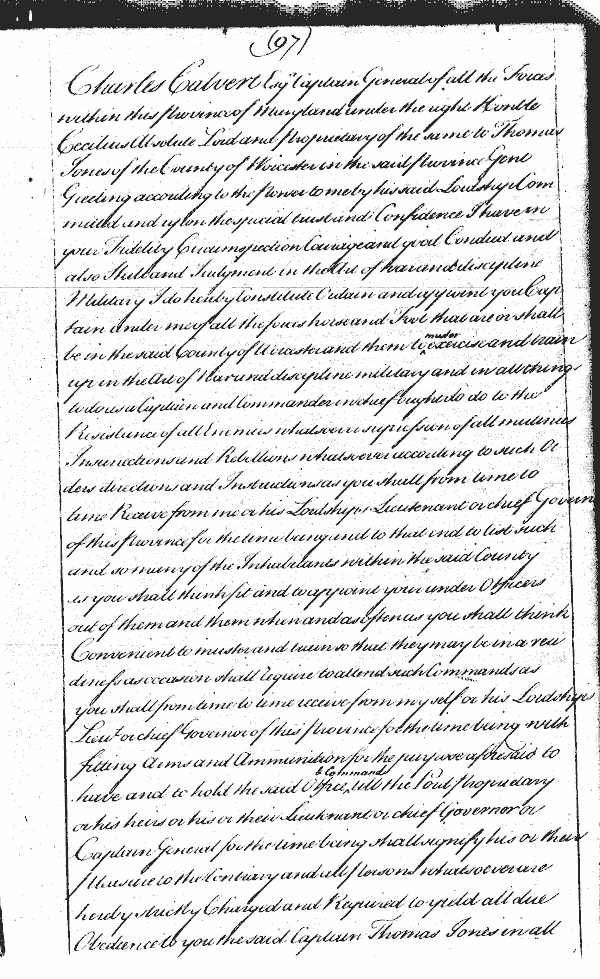 (97)
Charles Calvert Esqr Captain General of all the Forces
within this Province of Maryland under the right Honble
Cecilius Absolute Lord and Proprietary of the same to Thomas
Jones of the County of Worcester in the said Province Gent
Greeting according to the Power to me by his said Lordship Com
mitted and upon the special trust and Confidence I have in
your Fidelity Circumspection Courage and good Conduct and
also Skill and Judgment in the Art of war and discipline
Military I do hereby Constitute Ordain and appoint you Cap
tain under me of all the forces horse and Foot that are or shall
be in the said County of Worcester and them to muster exercise and train
up in the Art of War and discipline military and in all things
to do as a Captain and Commander in chief ought to do to the
Resistance of all Enemies whatsoever supression of all mutinies
Insurrections and Rebellions whatsoever according to such Or
ders directions and Instructions as you shall from time to
time Receive from me or his Lordships Lieutenant or chief Govern
of this Province for the time being and to that end to list such
and so many of the Inhabitants within the said County
as you shall think fit and to appoint your under Officers
out of them and them when and as often as you shall think
Convenient to muster and train so that they may be in a rea
diness as occasion shall require to attend such Commands as
you shall from time to time receive from my self or his Lordships
Lieut or chief Governor of this Province for the time being with
fitting Arms and Ammunition for the purpose aforesaid to
have and to hold the said Office, & Command till the Lord Proprietary
or his heirs or his or their Lieutenant or chief Governor or
Captain General for the time being shall signify his or their
Pleasure to the Contrary and all Persons whatsoever are
hereby strictly Charged and Required to yield all due
Obedience to you the said Captain Thomas Jones in all